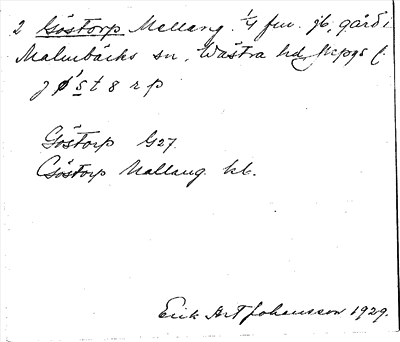 2 Göstorp Mellang. 1/4 fm. 76, gård i
Malmbäcks sn, Wästra hd, Jkpgs l:
j ø´ s t 8 r p
Göstorp G27.
Göstorp Mallang. kb.
Erik Art Johansson 1929.